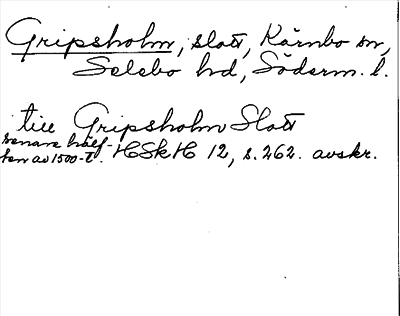 Gripsholm, slott, Kärnbo sn,
Selebo hd, Söderm. l.
till Gripsholm Slott
senare hälf-
ten av 1500-t. HSkH 12, s. 262. avskr.